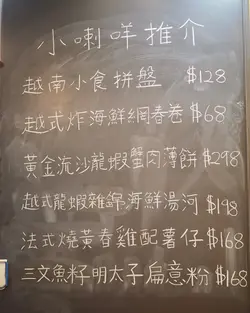 小喇咩推介
越南小食拼盤 $128
越式炸海鮮網春卷 $68
黃金流沙龍蝦蟹肉薄餅 $298
越式龍蝦雜錦海鮮湯河 $198
法式燒黃春雞配薯仔 $168
三文魚籽明太子扁意粉 $168